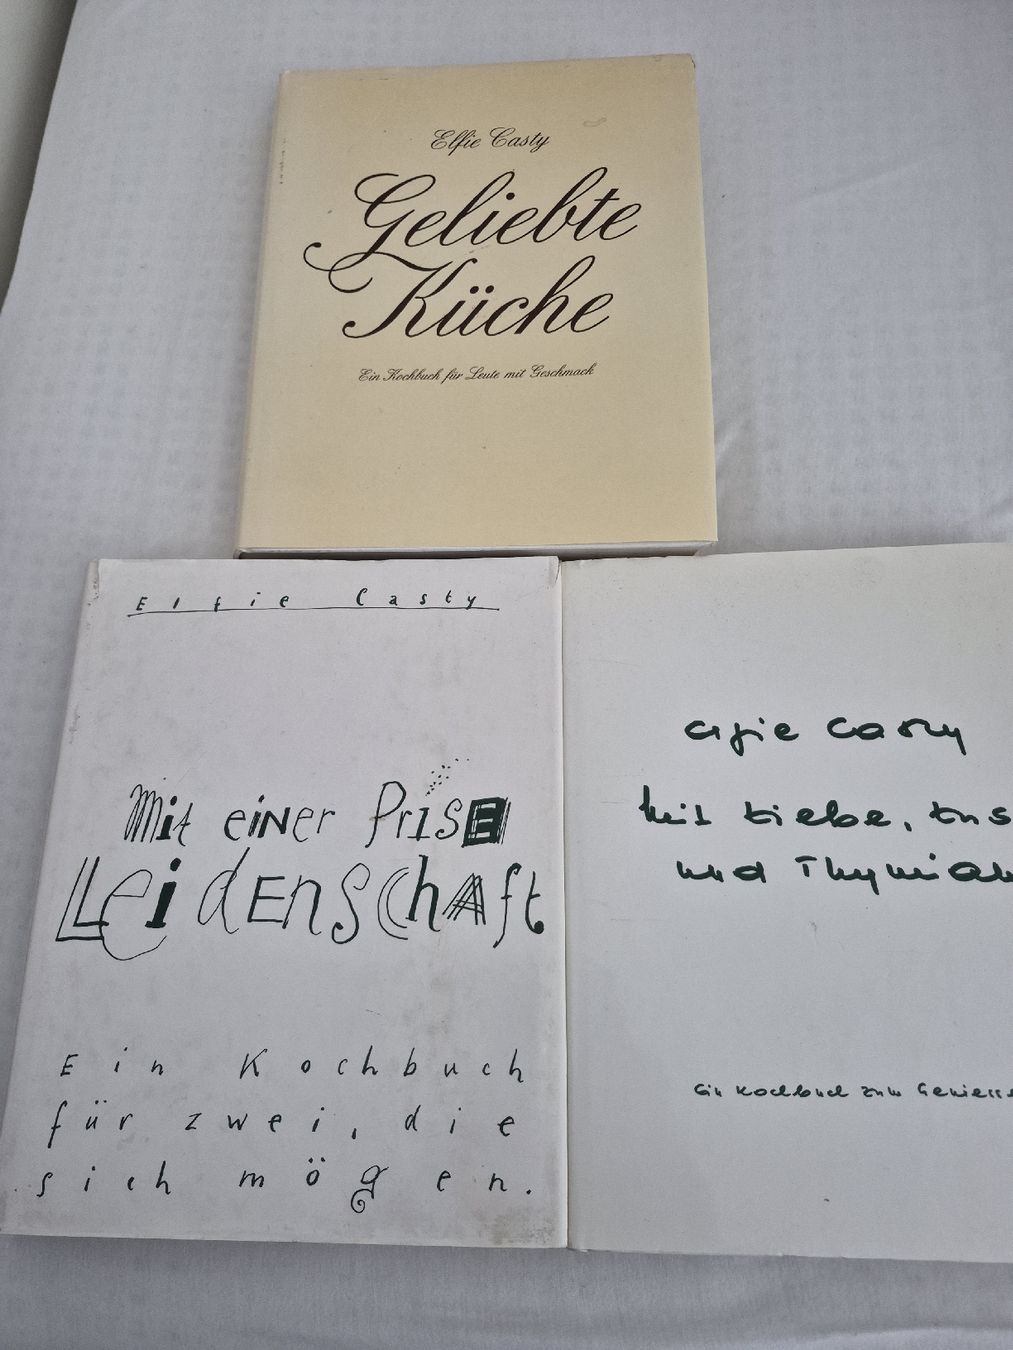 Elfie Casty
Geliebte
Küche
Ein Kochbuch für Leute mit Geschmack
Elfie Casty
Mit einer Prise
Leidenschaft
Ein Kochbuch
für zwei, die
sich mögen.
Elfie Casty
Mit Liebe, Lus
und Thymian
Ein Kochbuch zum Geniess